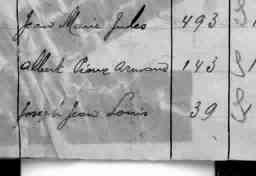 Jean Marie Jules 493
Albert Pierre Armand 143
Joseph Jean Louis 39